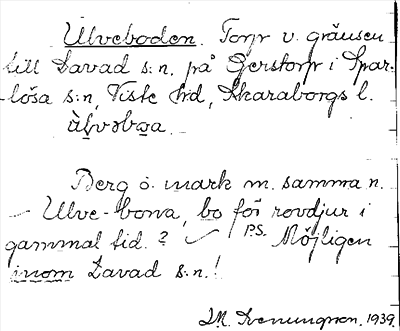 Ulveboden. Torp v. gränsen
till Lavad s:n. på Gerstorp i Spar-
lösa s:n, Viste hd, Skaraborgs l.
ùl̥vəbωa.
Berg o. mark m. samma n.
– Ulve-bona, bo för rovdjur i
gammal tid. ? P.S. Möjligen
inom Lavad s:n.!
1939.